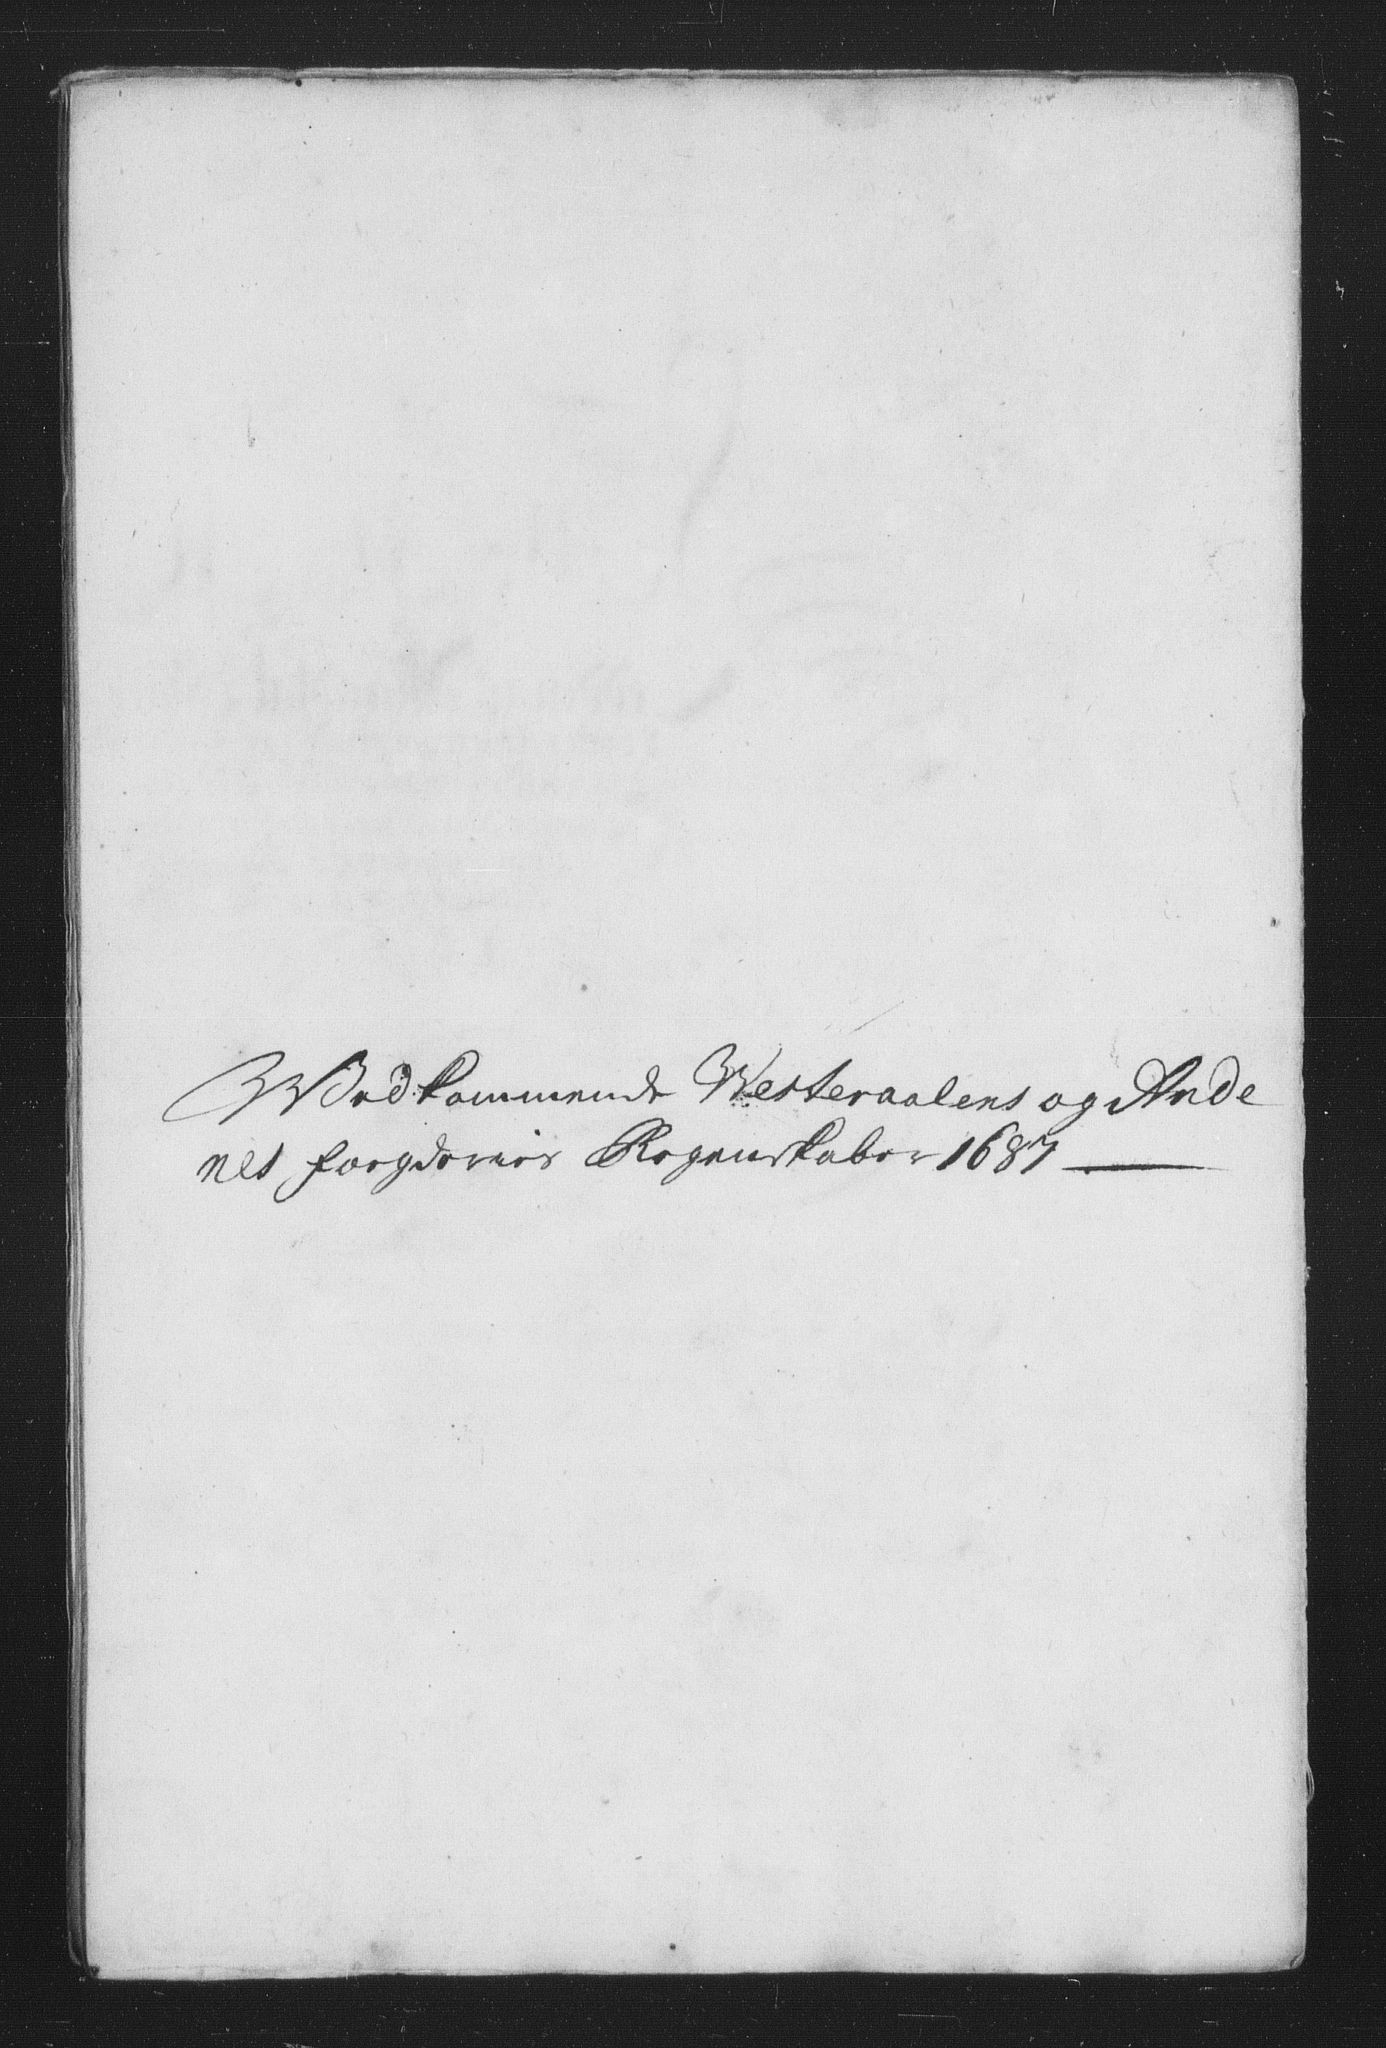 Wedkommende Westeraalens og Ande
nes fougderiers Regenskaber 1687